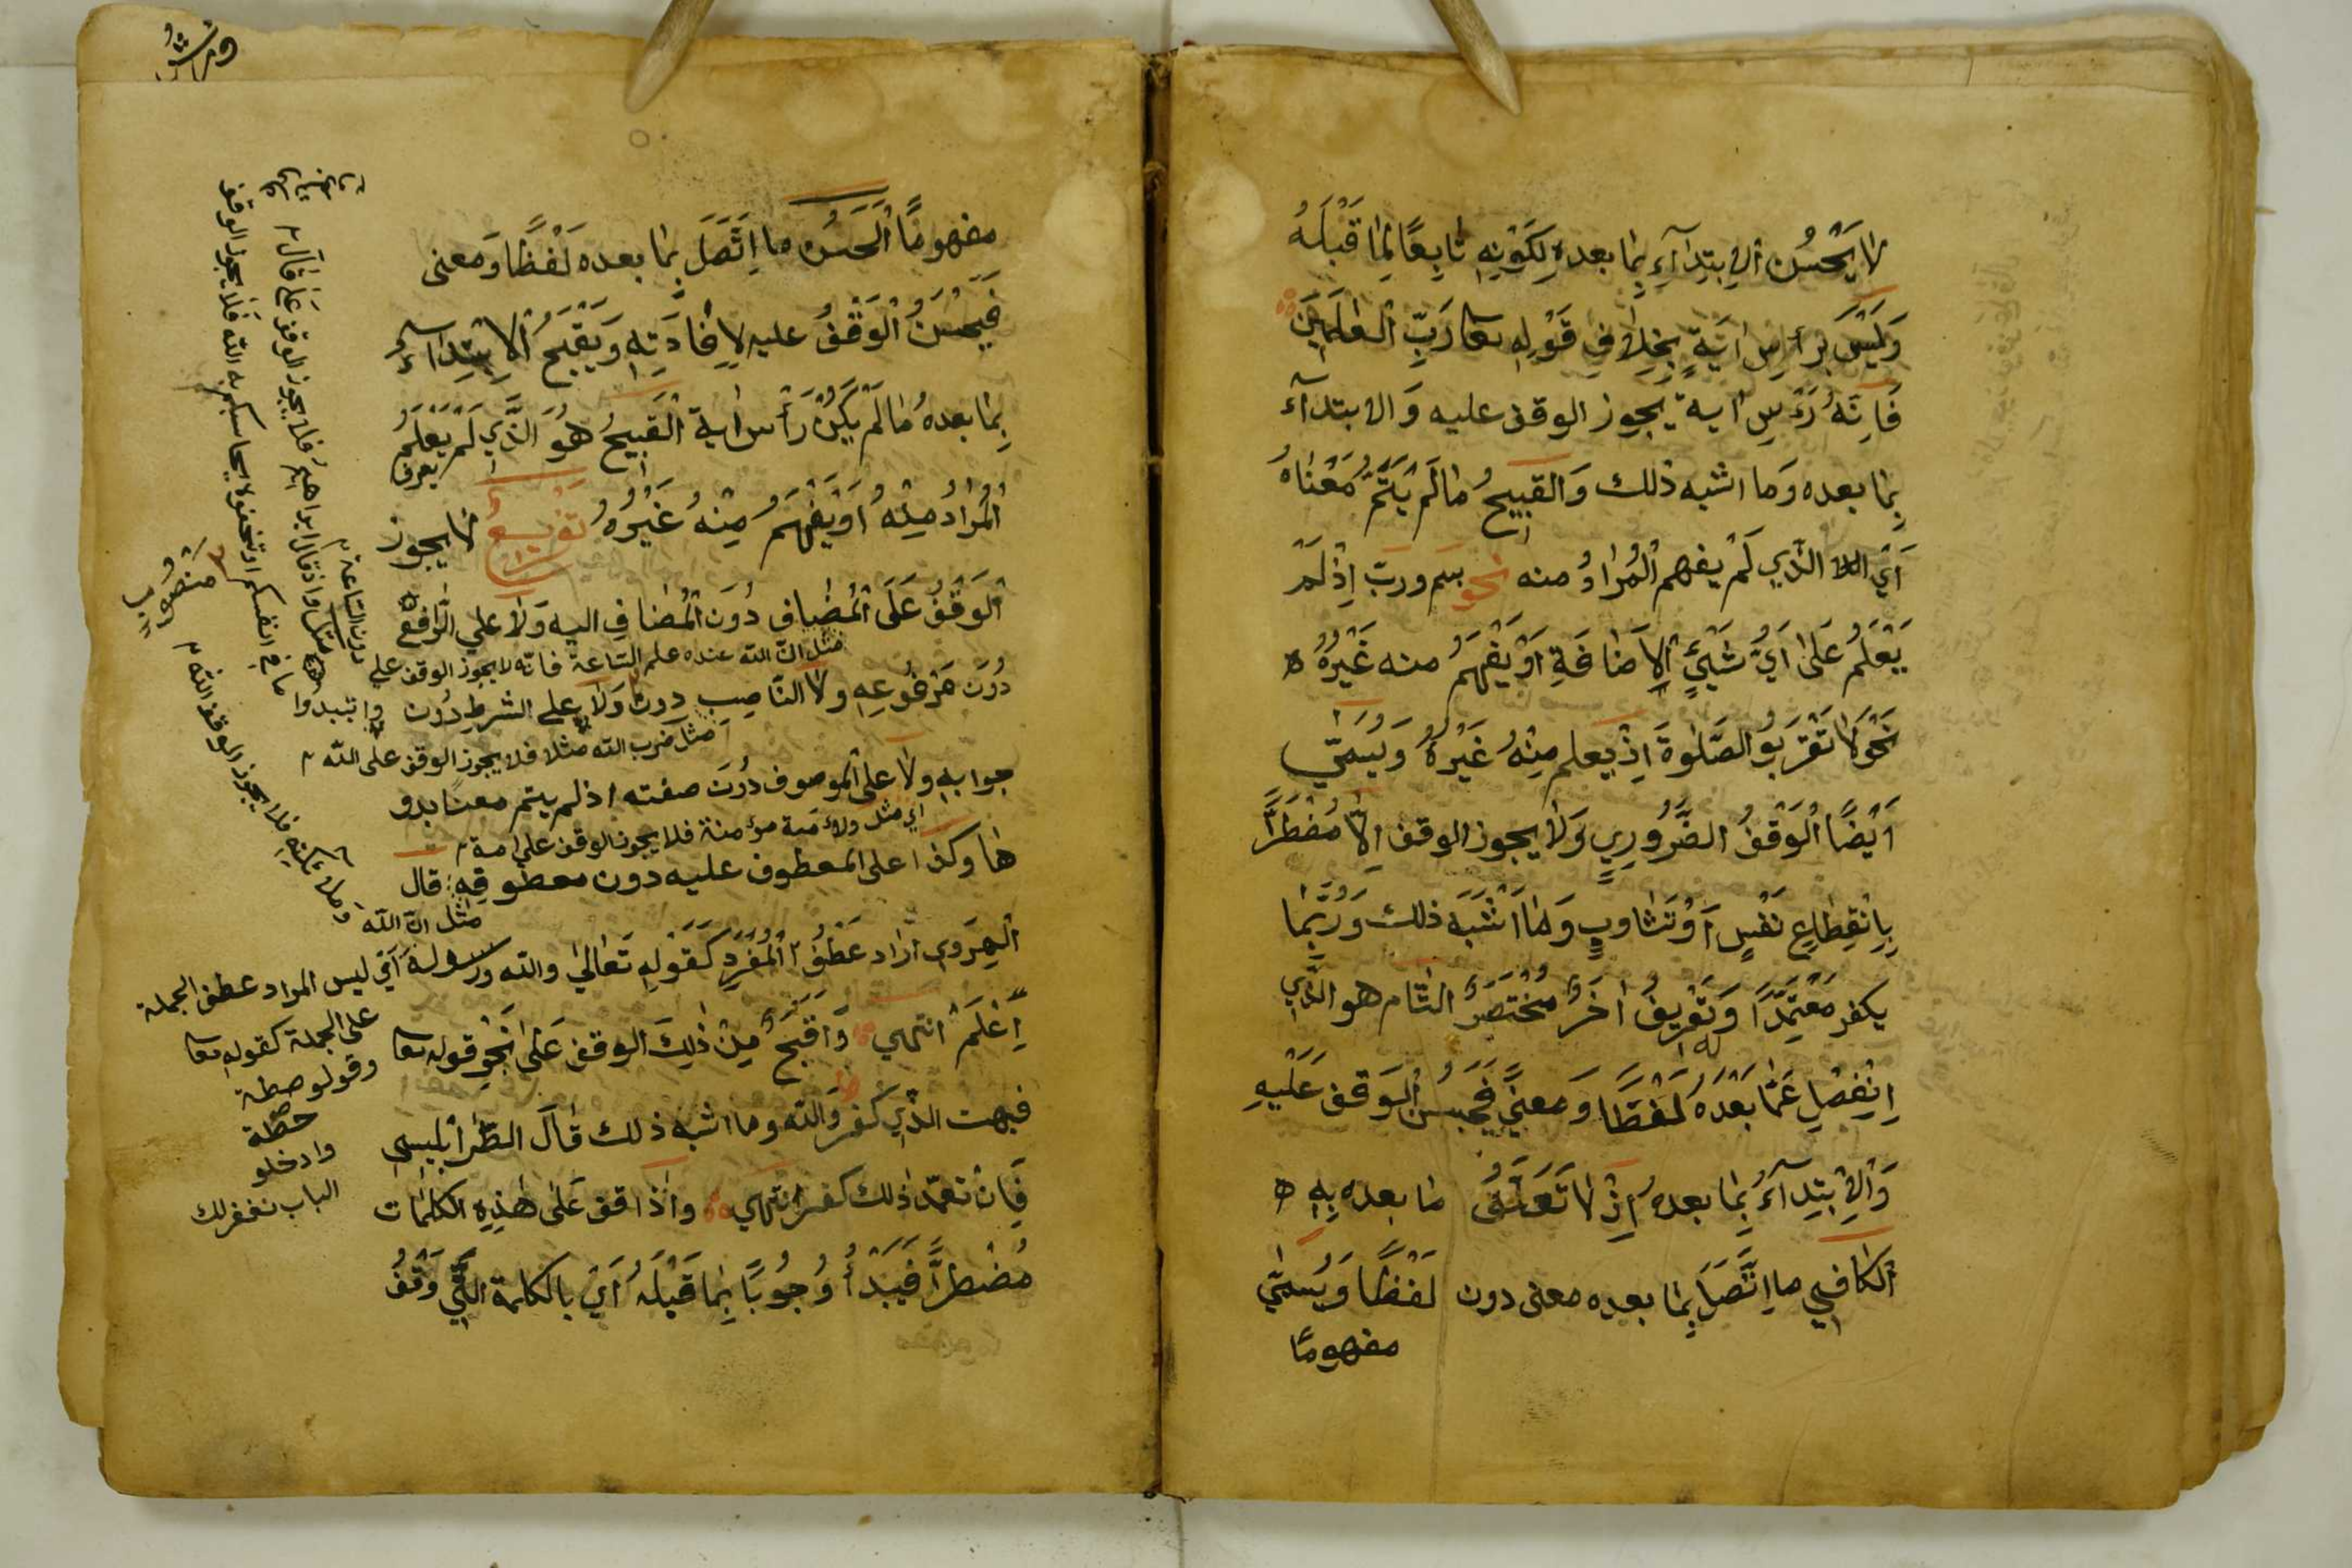 لا يَحْسُنُ الاِبْتِدَآءُ بِمَا بعده لِكَوْنِهِ تَابِعًا لِمَا قَبْلَهُ
وَلَيْسَ بِرَأسِ ايَةٍ بِخِلافِ قَوْلِهِ تعا رَبِّ الْعَالَمِينَ
فَاِنَّهُ رَءْسِ اية يَجوز الوقف عليه وَالابتدآء
بِمَا بعده وَما اشبه ذلك وَالقَبِيحُ مَا لَمْ يَتِمَّ مَعْنَاهُ
اَيْ الَّذِي لَمْ يفهم الْمُرَادُ منه نحو بسم وربّ اِذْ لَمْ
يَعْلَمُ عَلَى اَيِّ شَيْئٍ الاِضَافَةِ اَوْ يَفْهَمُ منه غَيْرُهُ ه
نَحْوَ لا تَقْرَبُو الصَّلوةَ اِذْ يعلم مِنْهُ غَيْرُهُ وَيُسَمَّي
اَيْضًا الْوَقْفُ الضَّرُورِي وَلا يجوز الوقف اِلاَّ مُضْطَرًّا
بِانْقِطَاعِ نَفْسٍ اَوْ تَثَاوبٍ وَمَا اَشْبَهَ ذلك وَرُبَّمَا
يكفر مُعْتَمِّدًا وَتَعْرِيفُ اخَرُ مُخْتَصَرُ التَّام هو الذَّي
اِنْفِصُلِ عَمَّا بَعْدَهُ لَفْظًا وَمعنيً فَيَحْسُنُ الْوَقف عَلَيْهِ
وَالاِبْتِدَآءُ بِمَا بعدهُ اِذْ لا تَعَلَّقُ مَا بعده بِهِ ه
الكافي ما اتَّصَلَ بِمَا بعده معنى دون لَفْظًا وَيُسَمَّي
مفهومًا
مفهومًا الْحَسَنُ ما اتَّصَلَ بِمَا بعده لَفْظًا وَمعنى
فَيَحْسُنُ الْوَقْفُ عليه لاِفَادَتِهِ وَيَقْبَحُ الاِبْتِدَآءُ
بِمَا بعدهُ مَا لَمْ يَكُنْ رَأس اية الْقَبِيحُ هُوَ الَّذِّي لَمْ يَعْلَمُ
يعرف
الْمُرَادُ مِنْهُ اَوْ يَفْهَمُ مِنْهُ غَيْرُهُ تَفْرِيعٌ لا يجوز
الْوَقْفُ عَلَى الْمُضَافِ دُوَن الْمُضَافِ اليه وَلا علي الرَّافع
مثل انّ الله عنده علم السّاعة فانّه لا يجوز الوقف على
دُونَ مَرْفُوعِهِ ولا النَّاصِبِ دون وَلا علي الشرطِ دُون
مثل ضرب الله مثلا فلا يجوز الوقف على الله
جوابهِ ولا على الموصوف دُونَ صفته اذ لم يتم معناه بدو
اي مثل ولأمة مؤمنة فلا يجوز الوقف على امة
ها وكذا على المعطوف عليه دون معطوفِهِ قال
مثل انّ الله
الْهِرَوي اراد عَطْفُ الْمُفْرَدِ كَقَوْلِهِ تَعَالي والله ورسوله اي ليس المراد عطف الجملة
اِعْلَمْ انتهي وَاقْبَحُ مِنْ ذَلِكَ الوقف عَلَى نَحْوِ قوله تعا
فبهت الذِّي كفر وَالله وما اشبه ذلك قَالَ الطَّرَابُلِيسي
فَاِنْ تعمّد ذلك كفر انتهي واذا قف عَلَى هَذِهِ الكلمَات
مُضْطَرًّا فَيَبْدَأُ وُجُوبًا بِمَا قَبْلَهُ اَيْ بالكلمة الَّتِّي وَقَفُ
على الجملة كقوله تعا
وقولو حطة
حطّة
وادخلو
الباب نغفر لك
دون السّاعة
مثل واذ قال ابراهيمُ فلا يجوز الوقف عَلَى قَالَ
وان تبدوا ما في انفسكم او تخفوه يحاسبكم به الله فَلا يجوز الوقف
منصوبه
فلا يجوز الوقف الله